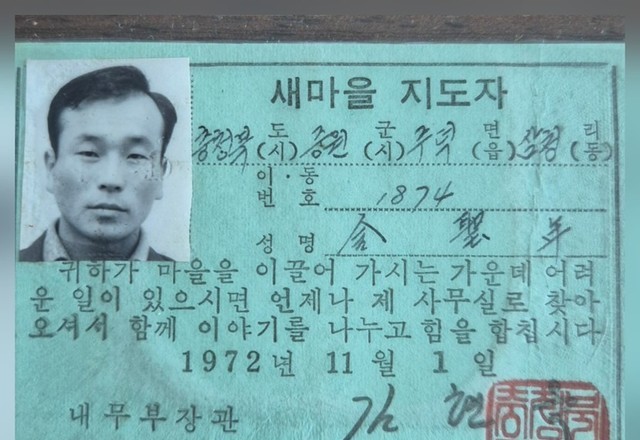 새마을 지도자
충청북 도(시) 중원 군(시) 주덕 면(읍) 리(동)
이·동
번호 1874
성명
귀하가 마을을 이끌어 가시는 가운데 어려
운 일이 있으시면 언제나 제 사무실로 찾아
오셔서 함께 이야기를 나누고 힘을 합칩시다
1972년 11월 1일
내무부장관 김현